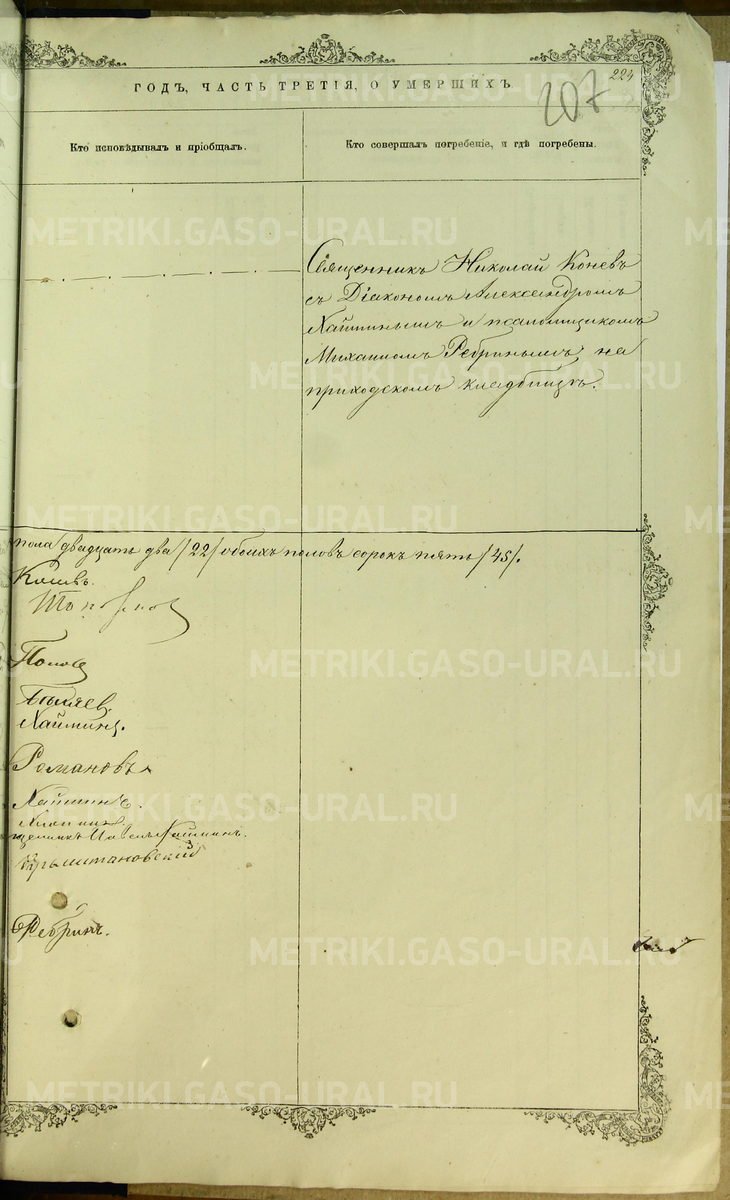 224
207
ГОДЪ, ЧАСТЬ ТРЕТІЯ, О УМЕРШИХЪ.
Кто исповѣдывалъ и пріобщалъ.
Кто совершалъ погребеніе, и гдѣ погребены.
Священникъ Николай Коневъ
съ Діакономъ Александромъ
Хайминымъ и псаломщикомъ
Михаиломъ Ребринымъ, на
приходскомъ кладбищѣ.
пола двадцать два /22/ обоихъ половъ сорокъ пять /45/.
Коневъ.
Топорков
Попов
Хайминъ.
Романовъ
Хайминъ.
Хайминъ.
Ребринъ.
METRIKI.GASO-URAL.RU